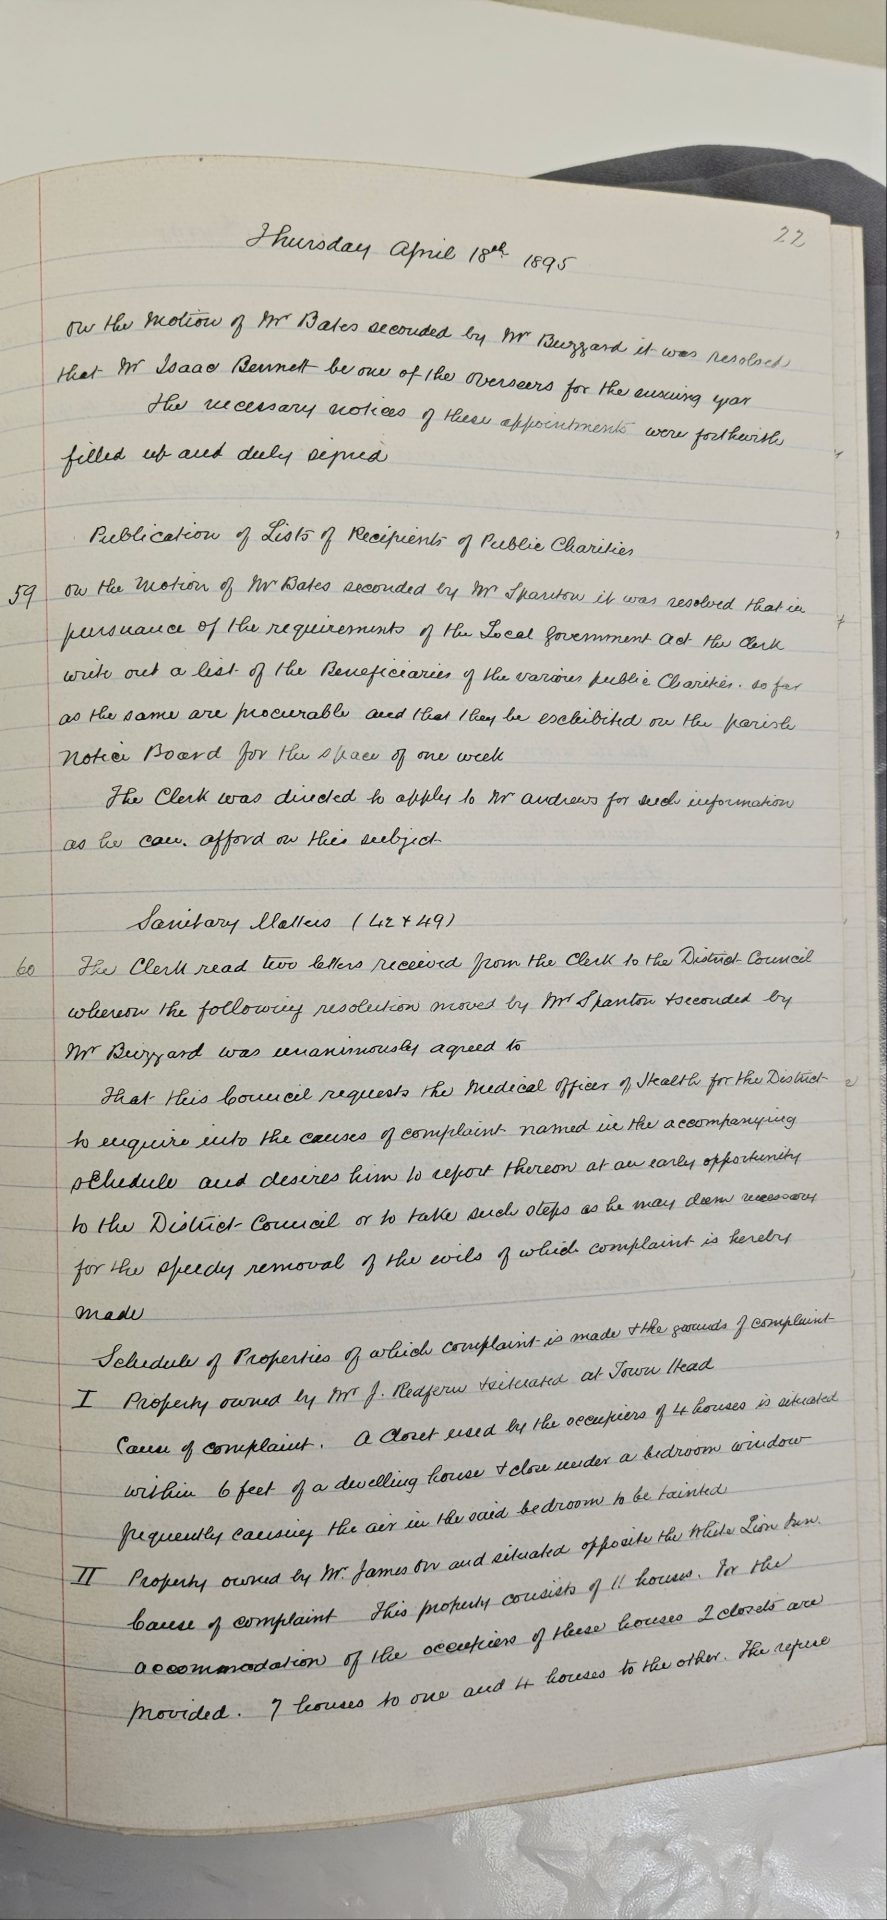 22
Thursday April 18th 1895
on the Motion of Mr Bates seconded by Mr Buzzard it was resolved
that Mr Isaac Bennett be one of the overseers for the ensuing year
The necessary notices of these appointments were forthwith
filled up and duly signed
Publication of Lists of Recipients of Public Charities
59 on the Motion of Mr Bates seconded by Mr Spanton it was resolved that in
pursuance of the requirements of the Local Government Act the Clerk
write out a list of the Beneficiaries of the various public Charities. so far
as the same are procurable and that they be exhibited on the parish
Notice Board for the space of one week
The Clerk was directed to apply to Mr Andrews for such information
as he can. afford on this subject
Sanitary Matters (42 & 49)
60 The Clerk read two letters received from the Clerk to the District Council
whereon the following resolution moved by Mr Spanton & seconded by
Mr Buzzard was unanimously agreed to
That this Council requests the Medical officer of Health for the District
to enquire into the causes of complaint named in the accompanying
schedule and desires him to report thereon at an early opportunity
to the District Council or to take such steps as he may deem necessary
for the speedy removal of the evils of which complaint is hereby
made
Schedule of Properties of which complaint is made & the grounds of complaint
I Property owned by Mr J. Redfern & situated at Town Head
Cause of complaint. A Closet used by the occupiers of 4 houses is situated
within 6 feet of a dwelling house & close under a bedroom window
frequently causing the air in the said bedroom to be tainted
II Property owned by Mr. James Orr and situated opposite the White Lion Inn.
Cause of complaint This property consists of 11 houses. For the
accommodation of the occupiers of these houses 2 closets are
provided. 7 houses to one and 4 houses to the other. The refuse